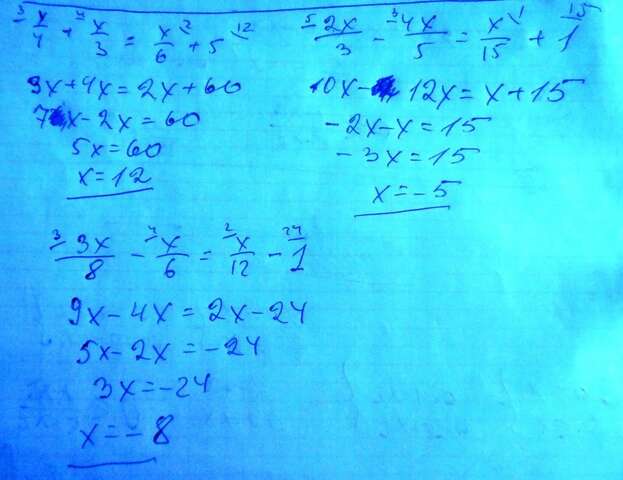 3 x/4 + 4 x/3 = x/6 2 + 5 12
3x+4x=2x+60
7x-2x=60
5x=60
x=12
5 2x/3 - 3 4x/5 = x/15 1 + 15 1
10x- 12x=x+15
-2x-x=15
-3x=15
x=-5
3 3x/8 - 4 x/6 = 2 x/12 - 24 1
9x-4x=2x-24
5x-2x=-24
3x=-24
x=-8